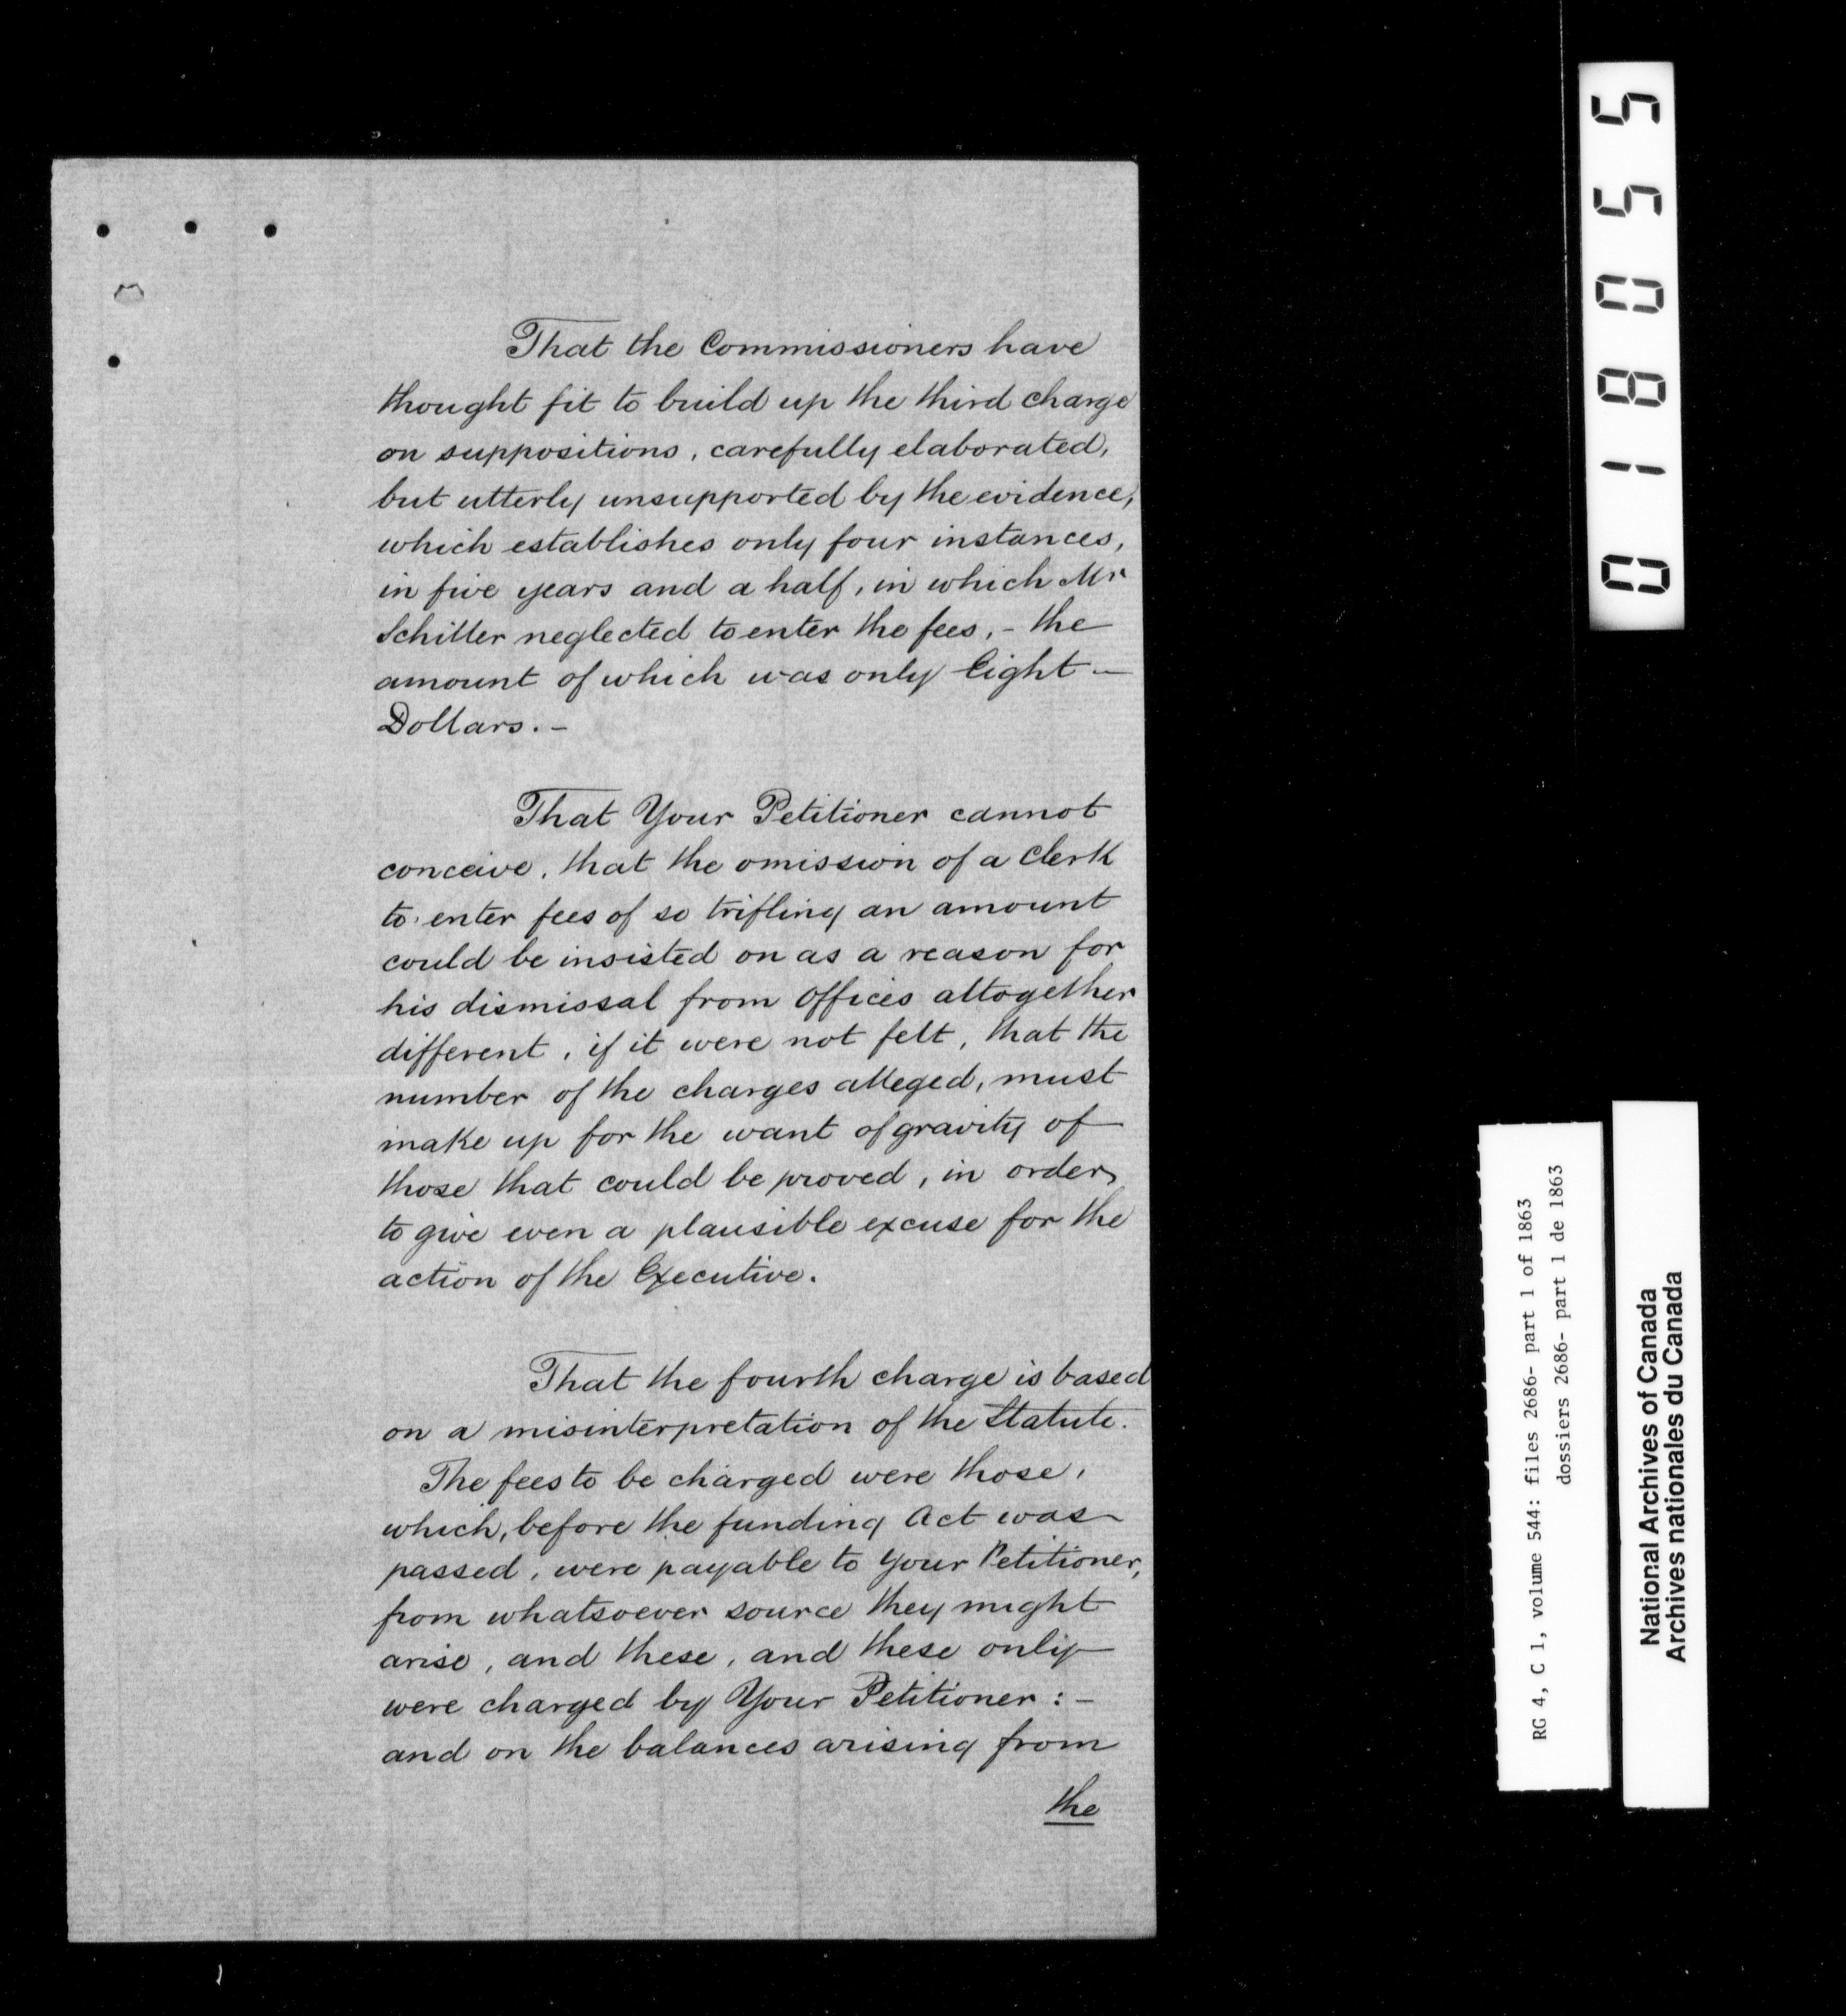 That the Commissioners have
thought fit to build up the third charge
on suppositions, carefully elaborated,
but utterly unsupported by the evidence,
which establishes only four instances,
in five years and a half, in which Mr
Schiller neglected to enter the fees, - the
amount of which was only Eight -
Dollars. -
That Your Petitioner cannot
conceive, that the omission of a Clerk
to enter fees of so trifling an amount
could be insisted on as a reason for
his dismissal from Offices altogether
different, if it were not felt, that the
number of the charges alleged, must
make up for the want of gravity of
those that could be proved, in order
to give even a plausible excuse for the
action of the Executive.
That the fourth charge is based
on a misinterpretation of the Statute.
The fees to be charged were those,
which, before the funding Act was
passed, were payable to Your Petitioner,
from whatsoever source they might
arise, and these, and these only
were charged by Your Petitioner : -
and on the balances arising from
the
018055
RG 4, C 1, volume 544: files 2686- part 1 of 1863
dossiers 2686- part 1 de 1863
National Archives of Canada
Archives nationales du Canada